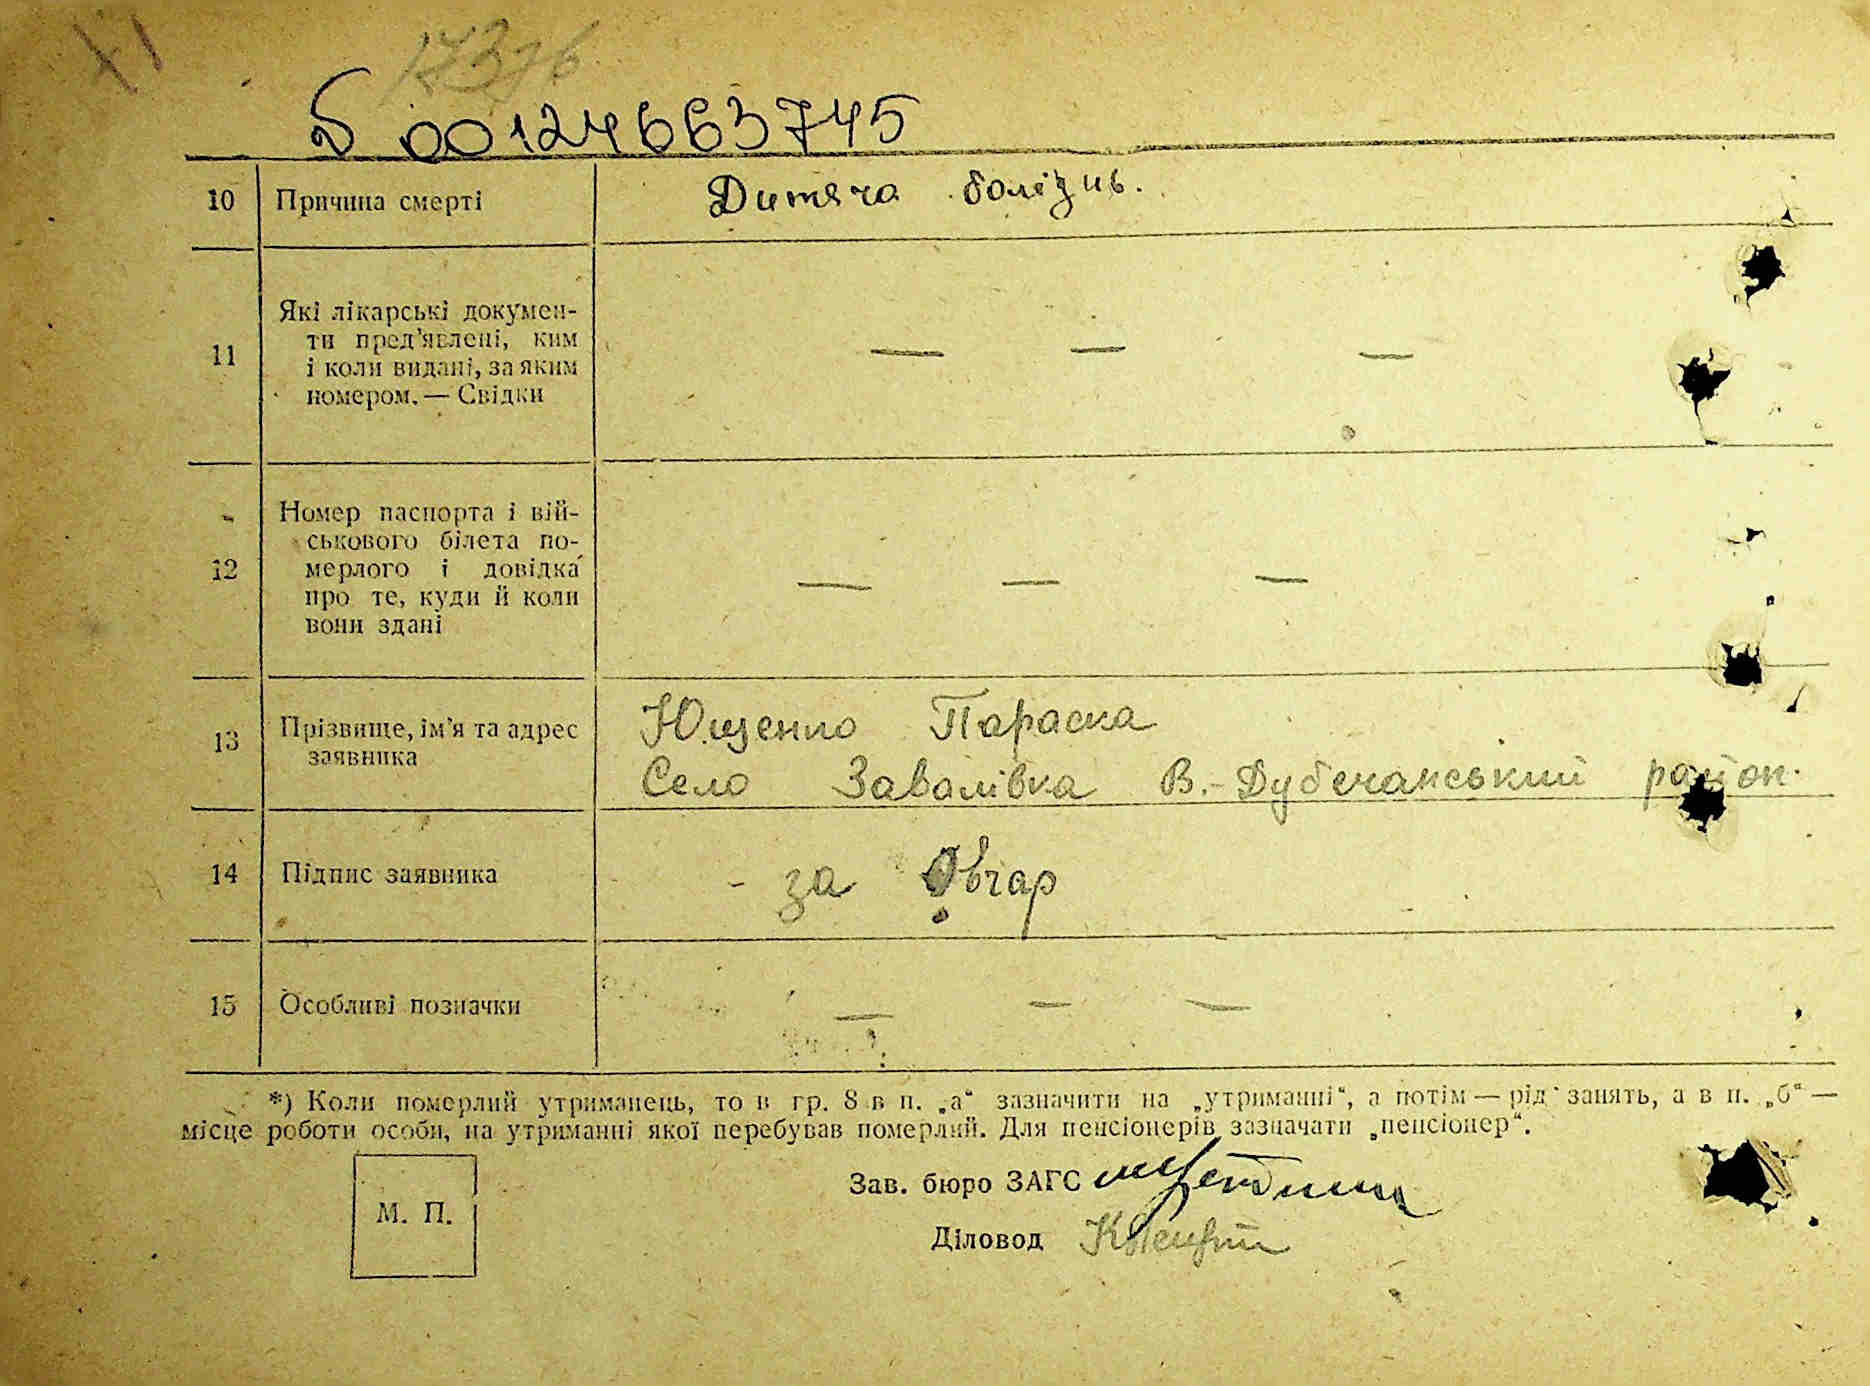 XI
00124663745
10 Причина смерті Дитяча болізнь.
11 Які лікарські докумен-
ти пред'явлені, ким
і коли видані, за яким
номером. — Свідки — — —
12 Номер паспорта і вій-
ськового білета по-
мерлого і довідка
про те, куди й коли
вони здані — — —
13 Прізвище, ім'я та адрес
заявника
Ющенко Параска
Село Завалівка В.-Дубечанський район.
14 Підпис заявника - за Овчар
15 Особливі позначки — — —
*) Коли померлий утриманець, то в гр. 8 в п. „а“ зазначити на „утриманні“, а потім — рід занять, а в п. „б“ —
місце роботи особи, на утриманні якої перебував померлий. Для пенсіонерів зазначати „пенсіонер“.
М. П.
Зав. бюро ЗАГС
Діловод